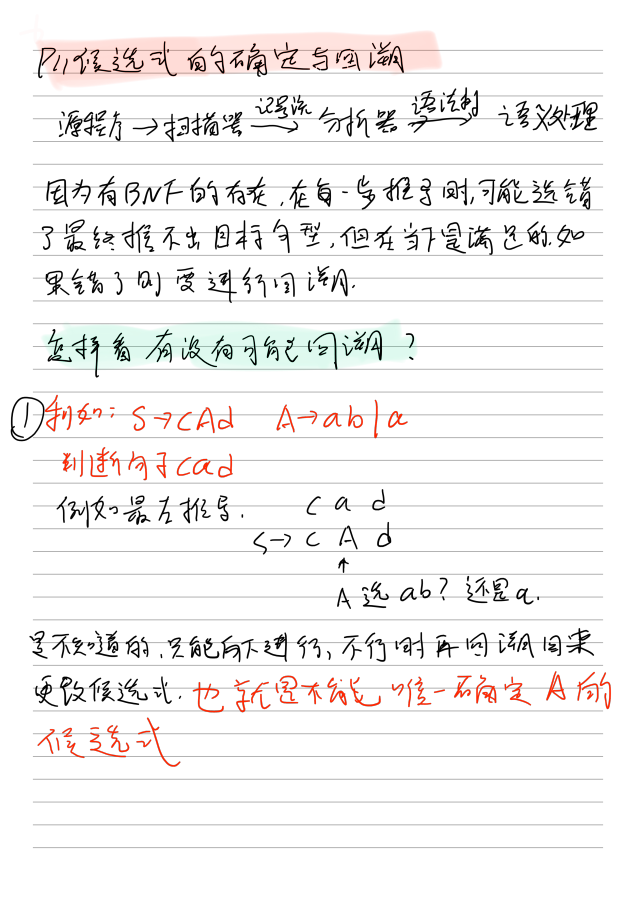 P11候选式的确定与回溯
源程序→扫描器 记号流→ 分析器 语法树→ 语义处理
因为有BNF的存在,在每一步推导时,可能选错
了最终推不出目标句型,但在当下是满足的.如
果错了则要进行回溯.
怎样看有没有可能回溯?
①例如: S→cAd A→ab|a
判断句子cad
例如最左推导. c a d
S→ c A d
↑
A选ab? 还是a.
是不知道的,只能向下进行,不行时再回溯回来
更改候选式.也就是不能唯一确定A的
候选式